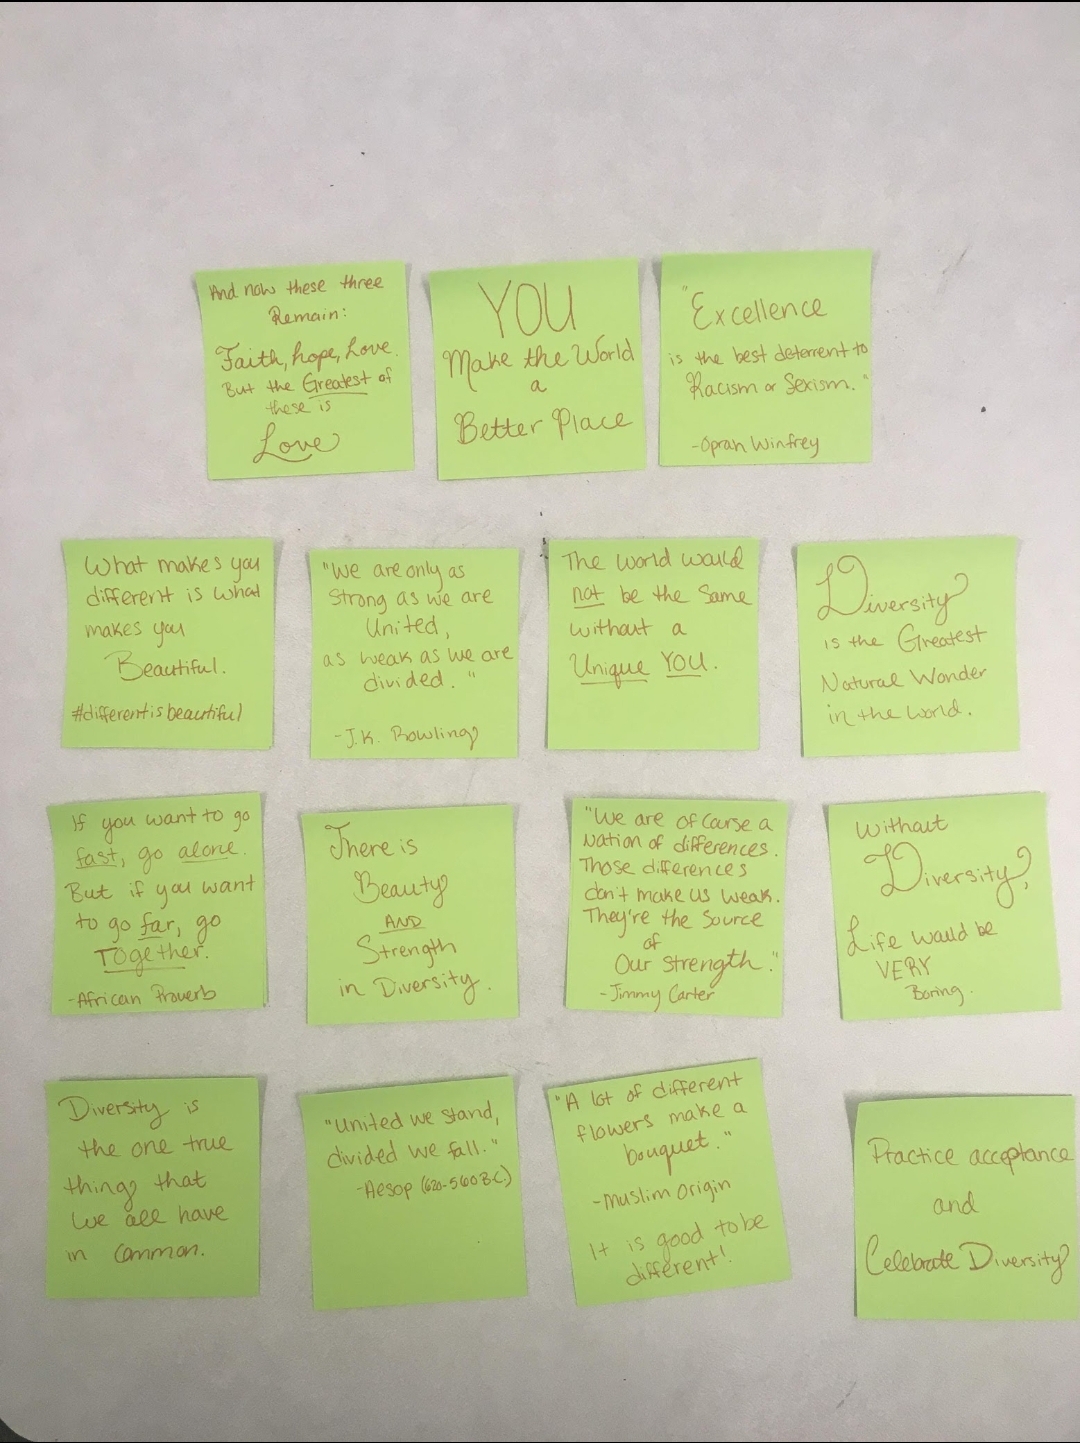 And now these three
Remain:
Faith, hope, Love.
But the Greatest of
these is
Love
YOU
Make the World
a
Better Place
"Excellence
is the best deterrent to
Racism or Sexism."
-Oprah Winfrey
What makes you
different is what
makes you
Beautiful.
#differentisbeautiful
"We are only as
strong as we are
United,
as weak as we are
divided."
-J.K. Rowling
The world would
not be the same
without a
Unique YOU.
Diversity
is the Greatest
Natural Wonder
in the world.
If you want to go
fast, go alone.
But if you want
to go far, go
TOgether.
-African Proverb
There is
Beauty
AND
Strength
in Diversity.
"We are of course a
Nation of differences.
Those differences
don't make us weak.
They're the source
of
Our strength."
-Jimmy Carter
Without
Diversity,
Life would be
VERY
Boring.
Diversity is
the one true
thing that
we all have
in common.
"United we stand,
divided we fall."
-Aesop (620-560 B.C.)
"A lot of different
flowers make a
bouquet."
-Muslim Origin
It is good to be
different!
Practice acceptance
and
Celebrate Diversity